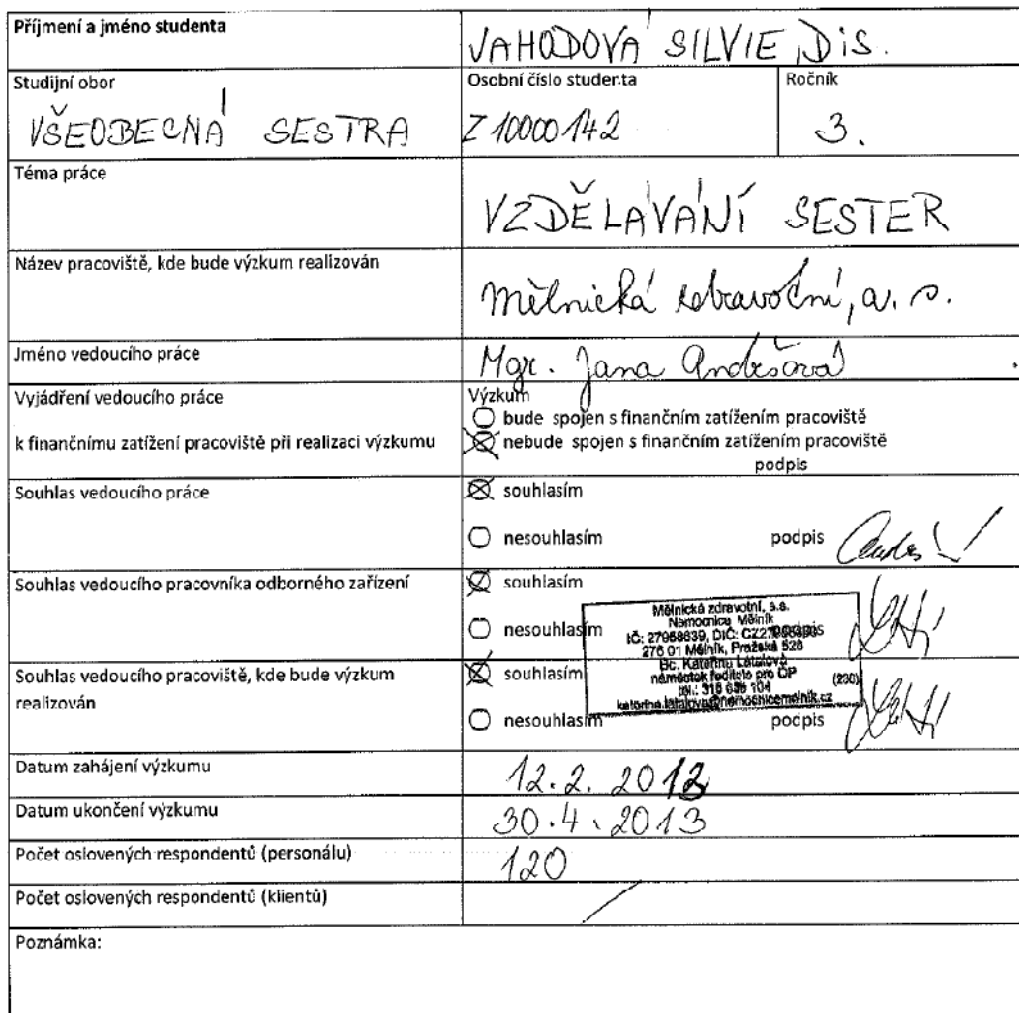 Příjmení a jméno studenta
VAHODOVÁ SILVIE, DiS.
Studijní obor
VŠEOBECNÁ SESTRA
Osobní číslo studenta
Z10000142
Ročník
3.
Téma práce
VZDĚLÁVÁNÍ SESTER
Název pracoviště, kde bude výzkum realizován
Mělnická zdravotní, a. s.
Jméno vedoucího práce
Mgr. Jana Andršová
Vyjádření vedoucího práce
k finančnímu zatížení pracoviště při realizaci výzkumu
Výzkum
bude spojen s finančním zatížením pracoviště
nebude spojen s finančním zatížením pracoviště
podpis
Souhlas vedoucího práce
souhlasím
nesouhlasím podpis
Souhlas vedoucího pracovníka odborného zařízení
souhlasím
nesouhlasím podpis
Mělnická zdravotní, a.s.
Nemocnice Mělník
IČ: 27958639, DIČ:
276 01 Mělník, Pražská 528
Bc. Kateřina Látalová
náměstek ředitele pro OP
tel.: 315 639 104 (230)
katerina.latalova@nemocnicemelnik.cz
Souhlas vedoucího pracoviště, kde bude výzkum
realizován
souhlasím
nesouhlasím podpis
Datum zahájení výzkumu
12.2. 2012
Datum ukončení výzkumu
30.4.2013
Počet oslovených respondentů (personálu)
120
Počet oslovených respondentů (klientů)
Poznámka: